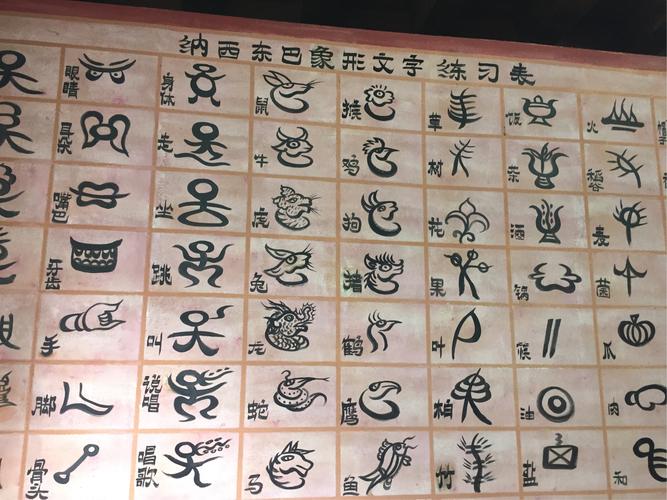 纳西东巴象形文字 练习表
眼睛 身体 鼠 猴 草 饭 火
耳朵 走 牛 鸡 树 菜 稻谷
嘴巴 坐 虎 狗 花 酒 麦
牙齿 跳 兔 猪 果 锅 菌
手 叫 龙 鹤 叶 筷 瓜
脚 说唱 蛇 鹰 柏 油 肉
骨头 唱歌 马 鱼 竹 盐